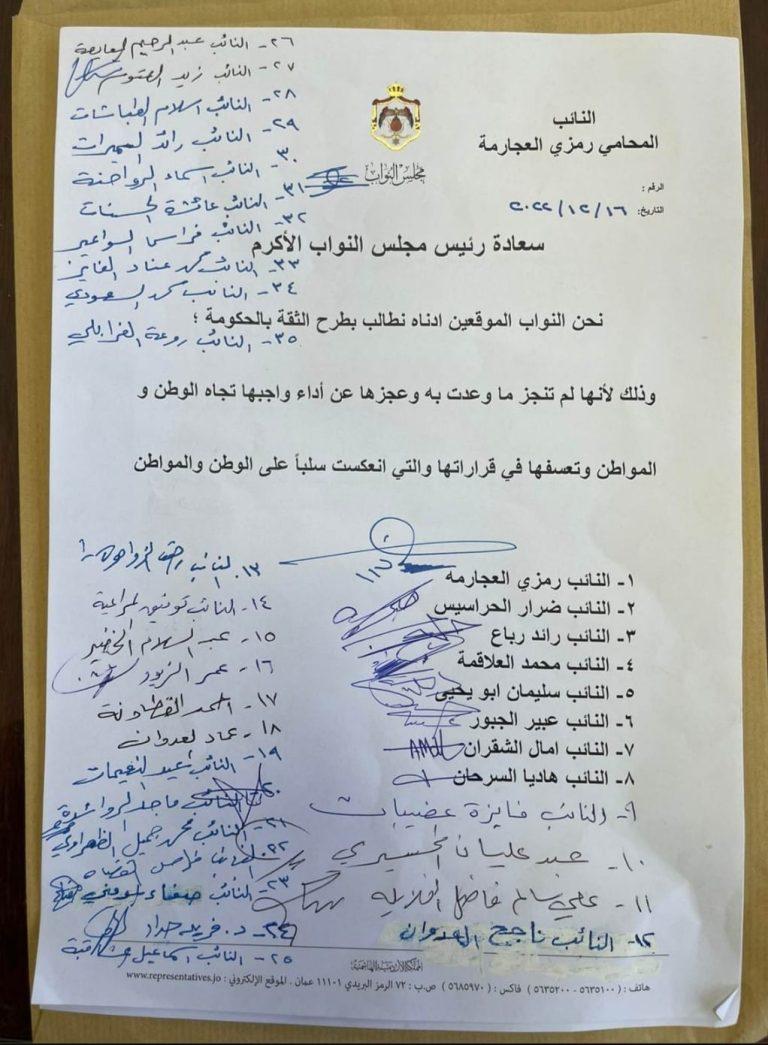 النائب
المحامي رمزي العجارمة
مجلس النواب
الرقم :
التاريخ: ٢٠٢٢/١٢/١٦
سعادة رئيس مجلس النواب الأكرم
نحن النواب الموقعين ادناه نطالب بطرح الثقة بالحكومة ؛
وذلك لأنها لم تنجز ما وعدت به وعجزها عن أداء واجبها تجاه الوطن و
المواطن وتعسفها في قراراتها والتي انعكست سلباً على الوطن والمواطن
١- النائب رمزي العجارمه
٢- النائب ضرار الحراسيس
٣- النائب رائد رباع
٤- النائب محمد العلاقمة
٥- النائب سليمان ابو يحيى
٦- النائب عبير الجبور
٧- النائب امال الشقران
٨- النائب هاديا السرحان
٩- النائب فايزة عضيبات
١٠- عبد عليان المحسيري
١١- علي سالم فاضل افلايله
١٢- النائب ناجح العدوان
١٣- النائب
١٤- النائب توفيق المراعية
١٥- عبد السلام الخضير
١٦- عمر الزيود
١٧- احمد القطاونة
١٨- عماد العدوان
١٩- النائب عيد النعيمات
٢٠- النائب ماجد الرواشدة
٢١- النائب محمد جميل الظهراوي
٢٢- النائب فراس القضاه
٢٣- النائب صفاء المومني
٢٤- د. فريد حداد
٢٥- النائب اسماعيل المشاقبة
٢٦- النائب عبد الرحيم المعايعة
٢٧- النائب زيد العتوم
٢٨- النائب اسلام الطباشات
٢٩- النائب رائد السميرات
٣٠- النائب اسماء الرواحنة
٣١- النائب عائشة الحسنات
٣٢- النائب فراس السواعير
٣٣- النائب محمد عناد الفايز
٣٤- النائب محمد السعودي
٣٥- النائب روعة الغرابلي
المملكة الأردنية الهاشمية
هاتف : ( ٥٦٣٥١٠٠ - ٥٦٣٥٢٠٠ ) فاكس : ( ٥٦٨٥٩٧٠ ) ص.ب : ٧٢ الرمز البريدي ١١١٠١ عمان . الموقع الإلكتروني : www.representatives.jo